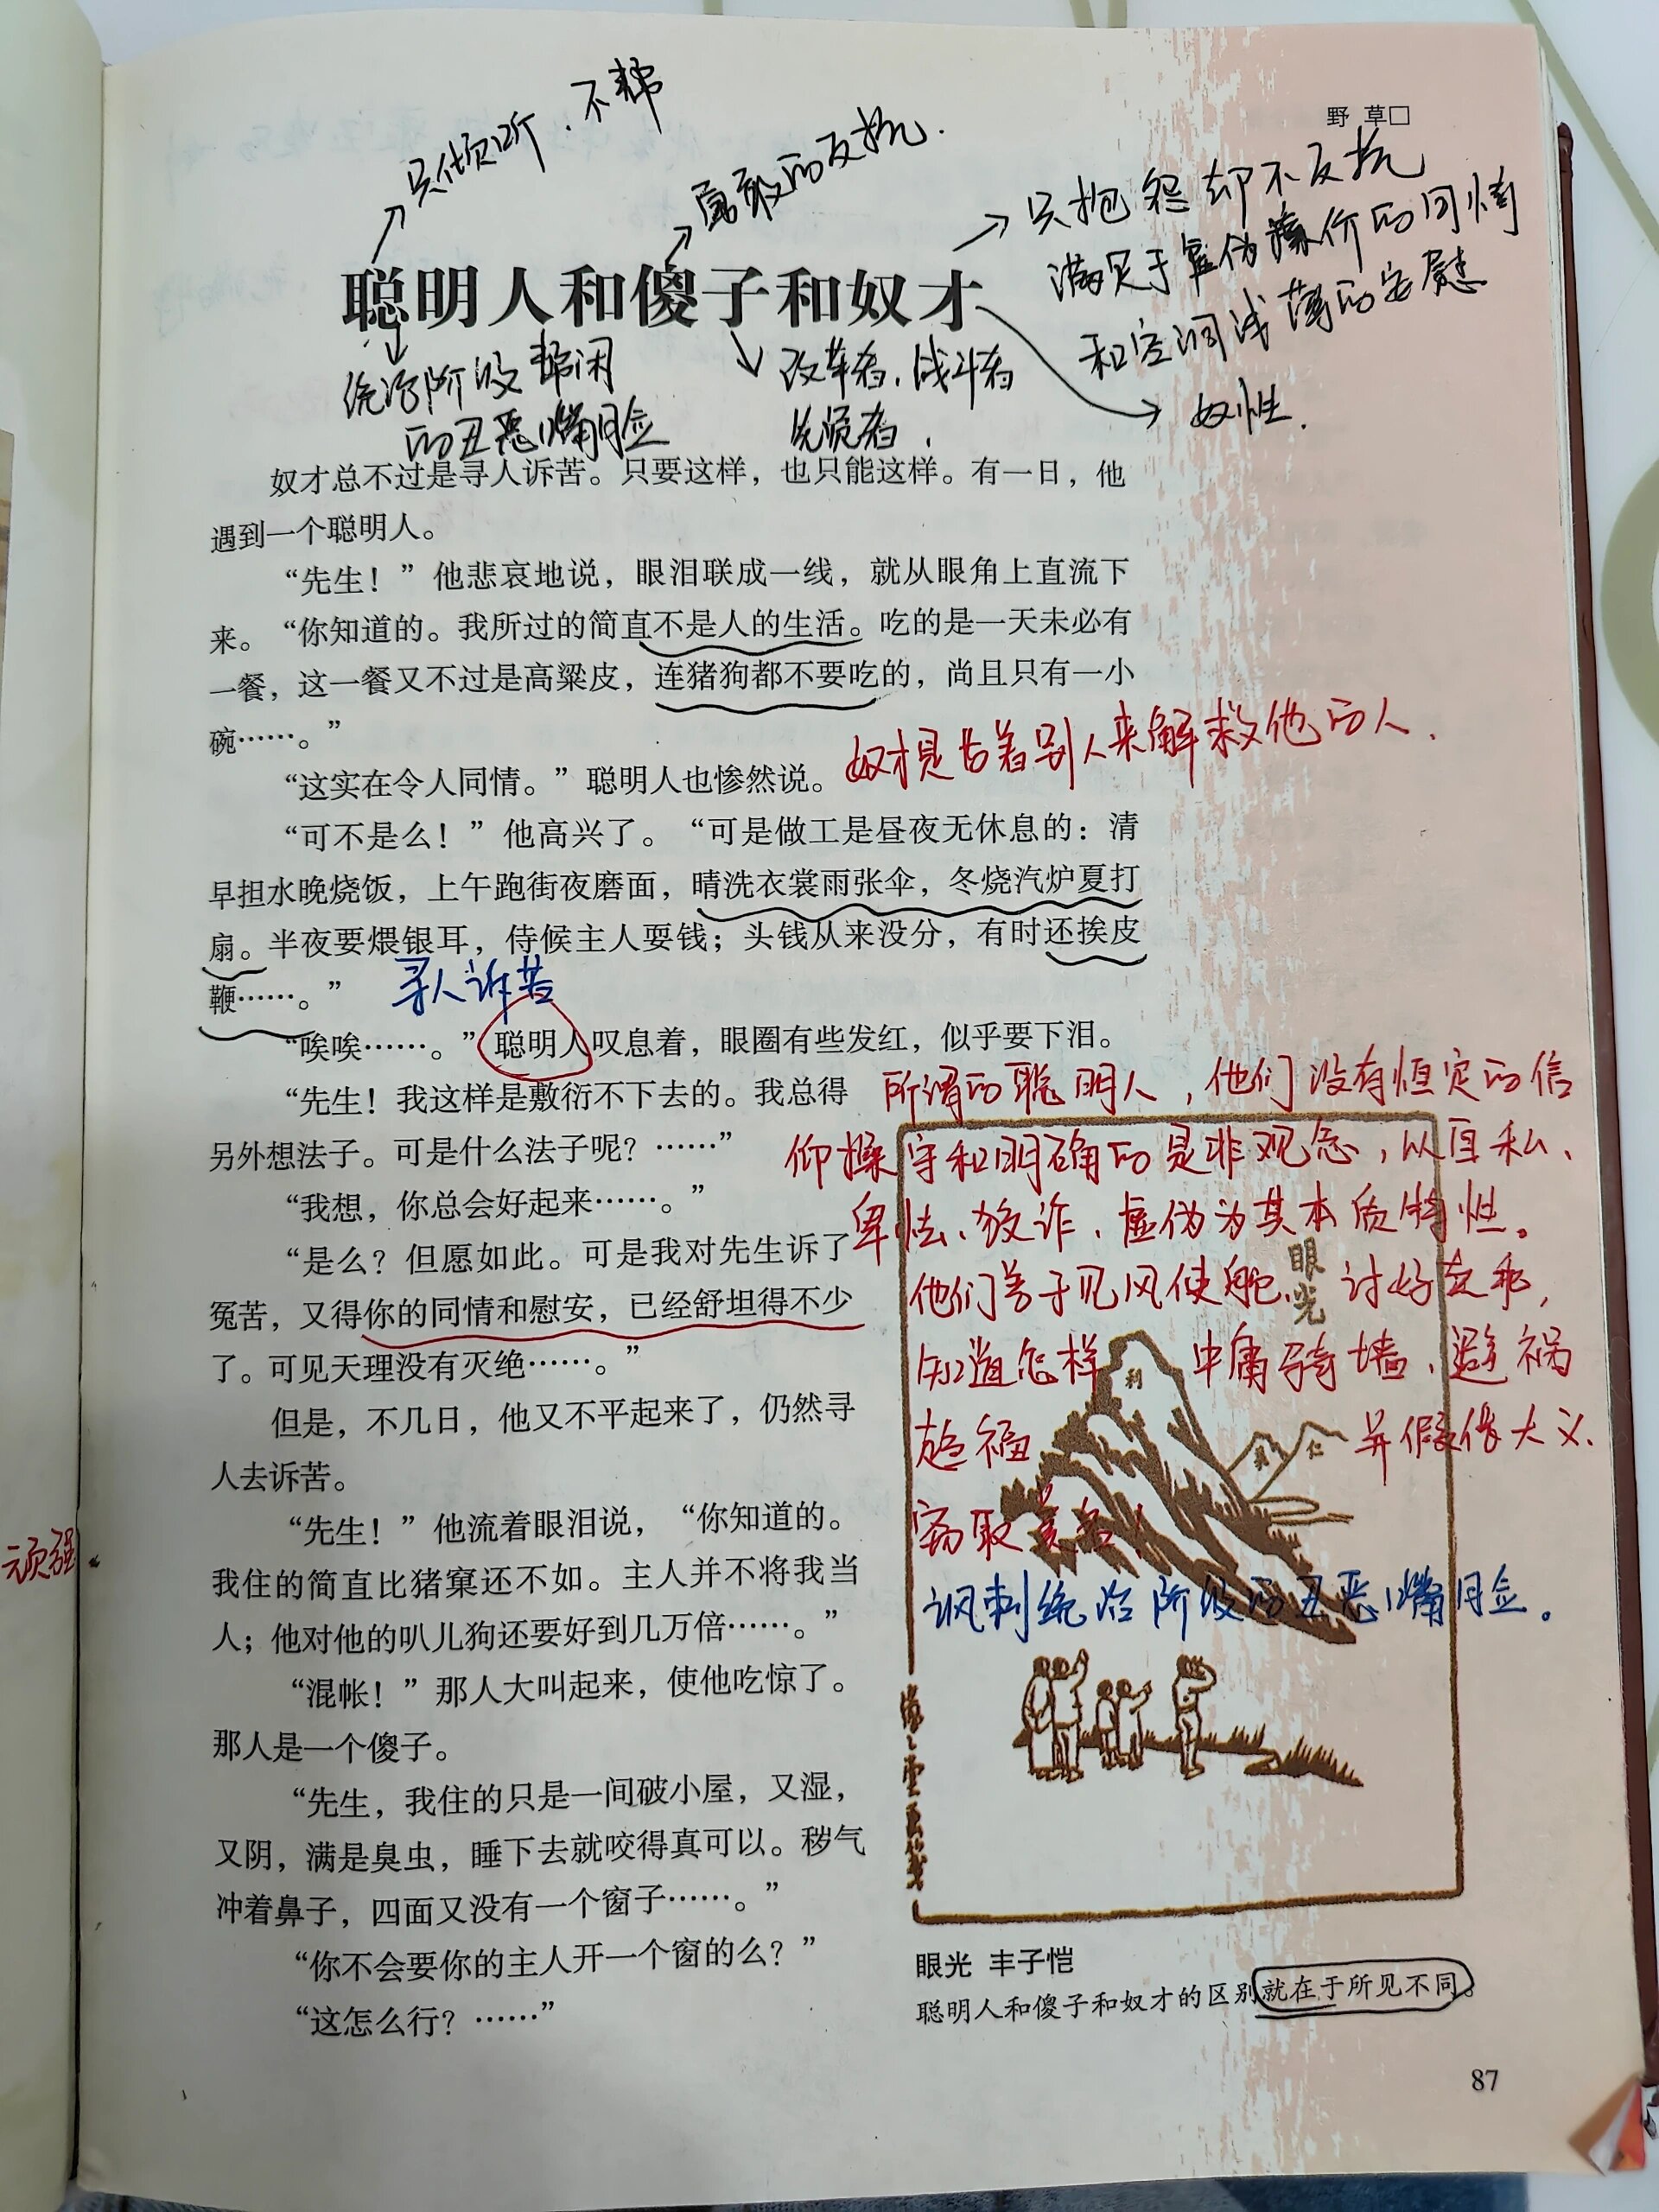 野 草□
只倾听、不帮
勇敢的反抗.
只抱怨却不反抗
满足于虚伪廉价的同情
和空洞浅薄的安慰
奴性.
聪明人和傻子和奴才
统治阶级帮闲
的丑恶嘴脸
改革者、战斗者
先贤者.
奴才总不过是寻人诉苦。只要这样，也只能这样。有一日，他
遇到一个聪明人。
“先生！”他悲哀地说，眼泪联成一线，就从眼角上直流下
来。“你知道的。我所过的简直不是人的生活。吃的是一天未必有
一餐，这一餐又不过是高粱皮，连猪狗都不要吃的，尚且只有一小
碗……。”
奴才是古着别人来解救他的人.
“这实在令人同情。”聪明人也惨然说。
“可不是么！”他高兴了。“可是做工是昼夜无休息的：清
早担水晚烧饭，上午跑街夜磨面，晴洗衣裳雨张伞，冬烧汽炉夏打
扇。半夜要煨银耳，侍候主人耍钱；头钱从来没分，有时还挨皮
鞭……。”
寻人诉苦
“唉唉……。”聪明人叹息着，眼圈有些发红，似乎要下泪。
“先生！我这样是敷衍不下去的。我总得
另外想法子。可是什么法子呢？……”
“我想，你总会好起来……。”
“是么？但愿如此。可是我对先生诉了
冤苦，又得你的同情和慰安，已经舒坦得不少
了。可见天理没有灭绝……。”
但是，不几日，他又不平起来了，仍然寻
人去诉苦。
“先生！”他流着眼泪说，“你知道的。
我住的简直比猪窠还不如。主人并不将我当
人；他对他的叭儿狗还要好到几万倍……。”
“混帐！”那人大叫起来，使他吃惊了。
那人是一个傻子。
“先生，我住的只是一间破小屋，又湿，
又阴，满是臭虫，睡下去就咬得真可以。秽气
冲着鼻子，四面又没有一个窗子……。”
“你不会要你的主人开一个窗的么？”
“这怎么行？……”
顽强
所谓的聪明人，他们没有恒定的信
仰操守和明确的是非观念，以自私、
卑怯、狡诈、虚伪为其本质特性。
他们善于见风使舵、讨好卖乖，
知道怎样中庸骑墙、避祸
趋福并假借大义、
窃取美名！
讽刺统治阶级的丑恶嘴脸。
眼光
利
义
仁
眼光 丰子恺
聪明人和傻子和奴才的区别就在于所见不同。
87